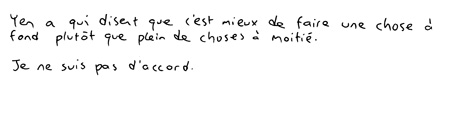 Yen a qui disent que c'est mieux de faire une chose à
fond plutôt que plein de choses à moitié.
Je ne suis pas d'accord.